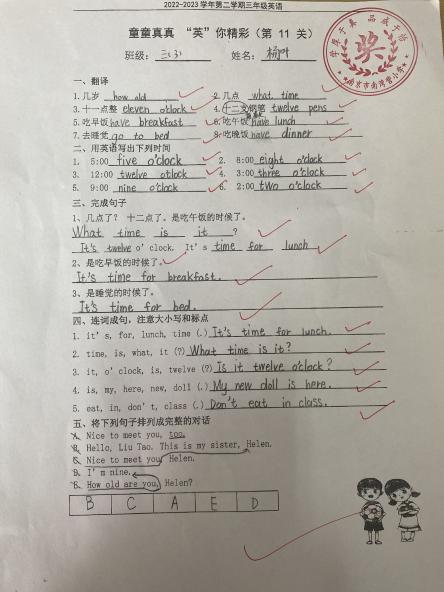 2022-2023 学年第二学期三年级英语
童童真真 “英”你精彩（第 11 关）
学厚于真 品成于行
奖
南京市南湾营小学
班级： 三(3) 姓名： 杨叶
一、翻译
1.几岁 how old 2.几点 what time
3.十一点整 eleven o'clock 4.十二支钢笔 twelve pens
5.吃早饭 have breakfast 6.吃午饭 have lunch
7.去睡觉 go to bed 8.吃晚饭 have dinner
二、用英语写出下列时间
1. 5:00 five o'clock 2. 8:00 eight o'clock
3. 12:00 twelve o'clock 4. 3:00 three o'clock
5. 9:00 nine o'clock 6. 2:00 two o'clock
三、完成句子
1、几点了？ 十二点了。是吃午饭的时候了。
What time is it ?
It's twelve o'clock. It's time for lunch
2、是吃早饭的时候了。
It's time for breakfast.
3、是睡觉的时候了。
It's time for bed.
四、连词成句，注意大小写和标点
1. it's, for, lunch, time (.) It's time for lunch.
2. time, is, what, it (?) What time is it?
3. it, o'clock, is, twelve (?) Is it twelve o'clock?
4. is, my, here, new, doll (.) My new doll is here.
5. eat, in, don't, class (.) Don't eat in class.
五、将下列句子排列成完整的对话
A. Nice to meet you, too.
B. Hello, Liu Tao. This is my sister, Helen.
C. Nice to meet you, Helen.
D. I'm nine.
E. How old are you, Helen?
B C A E D